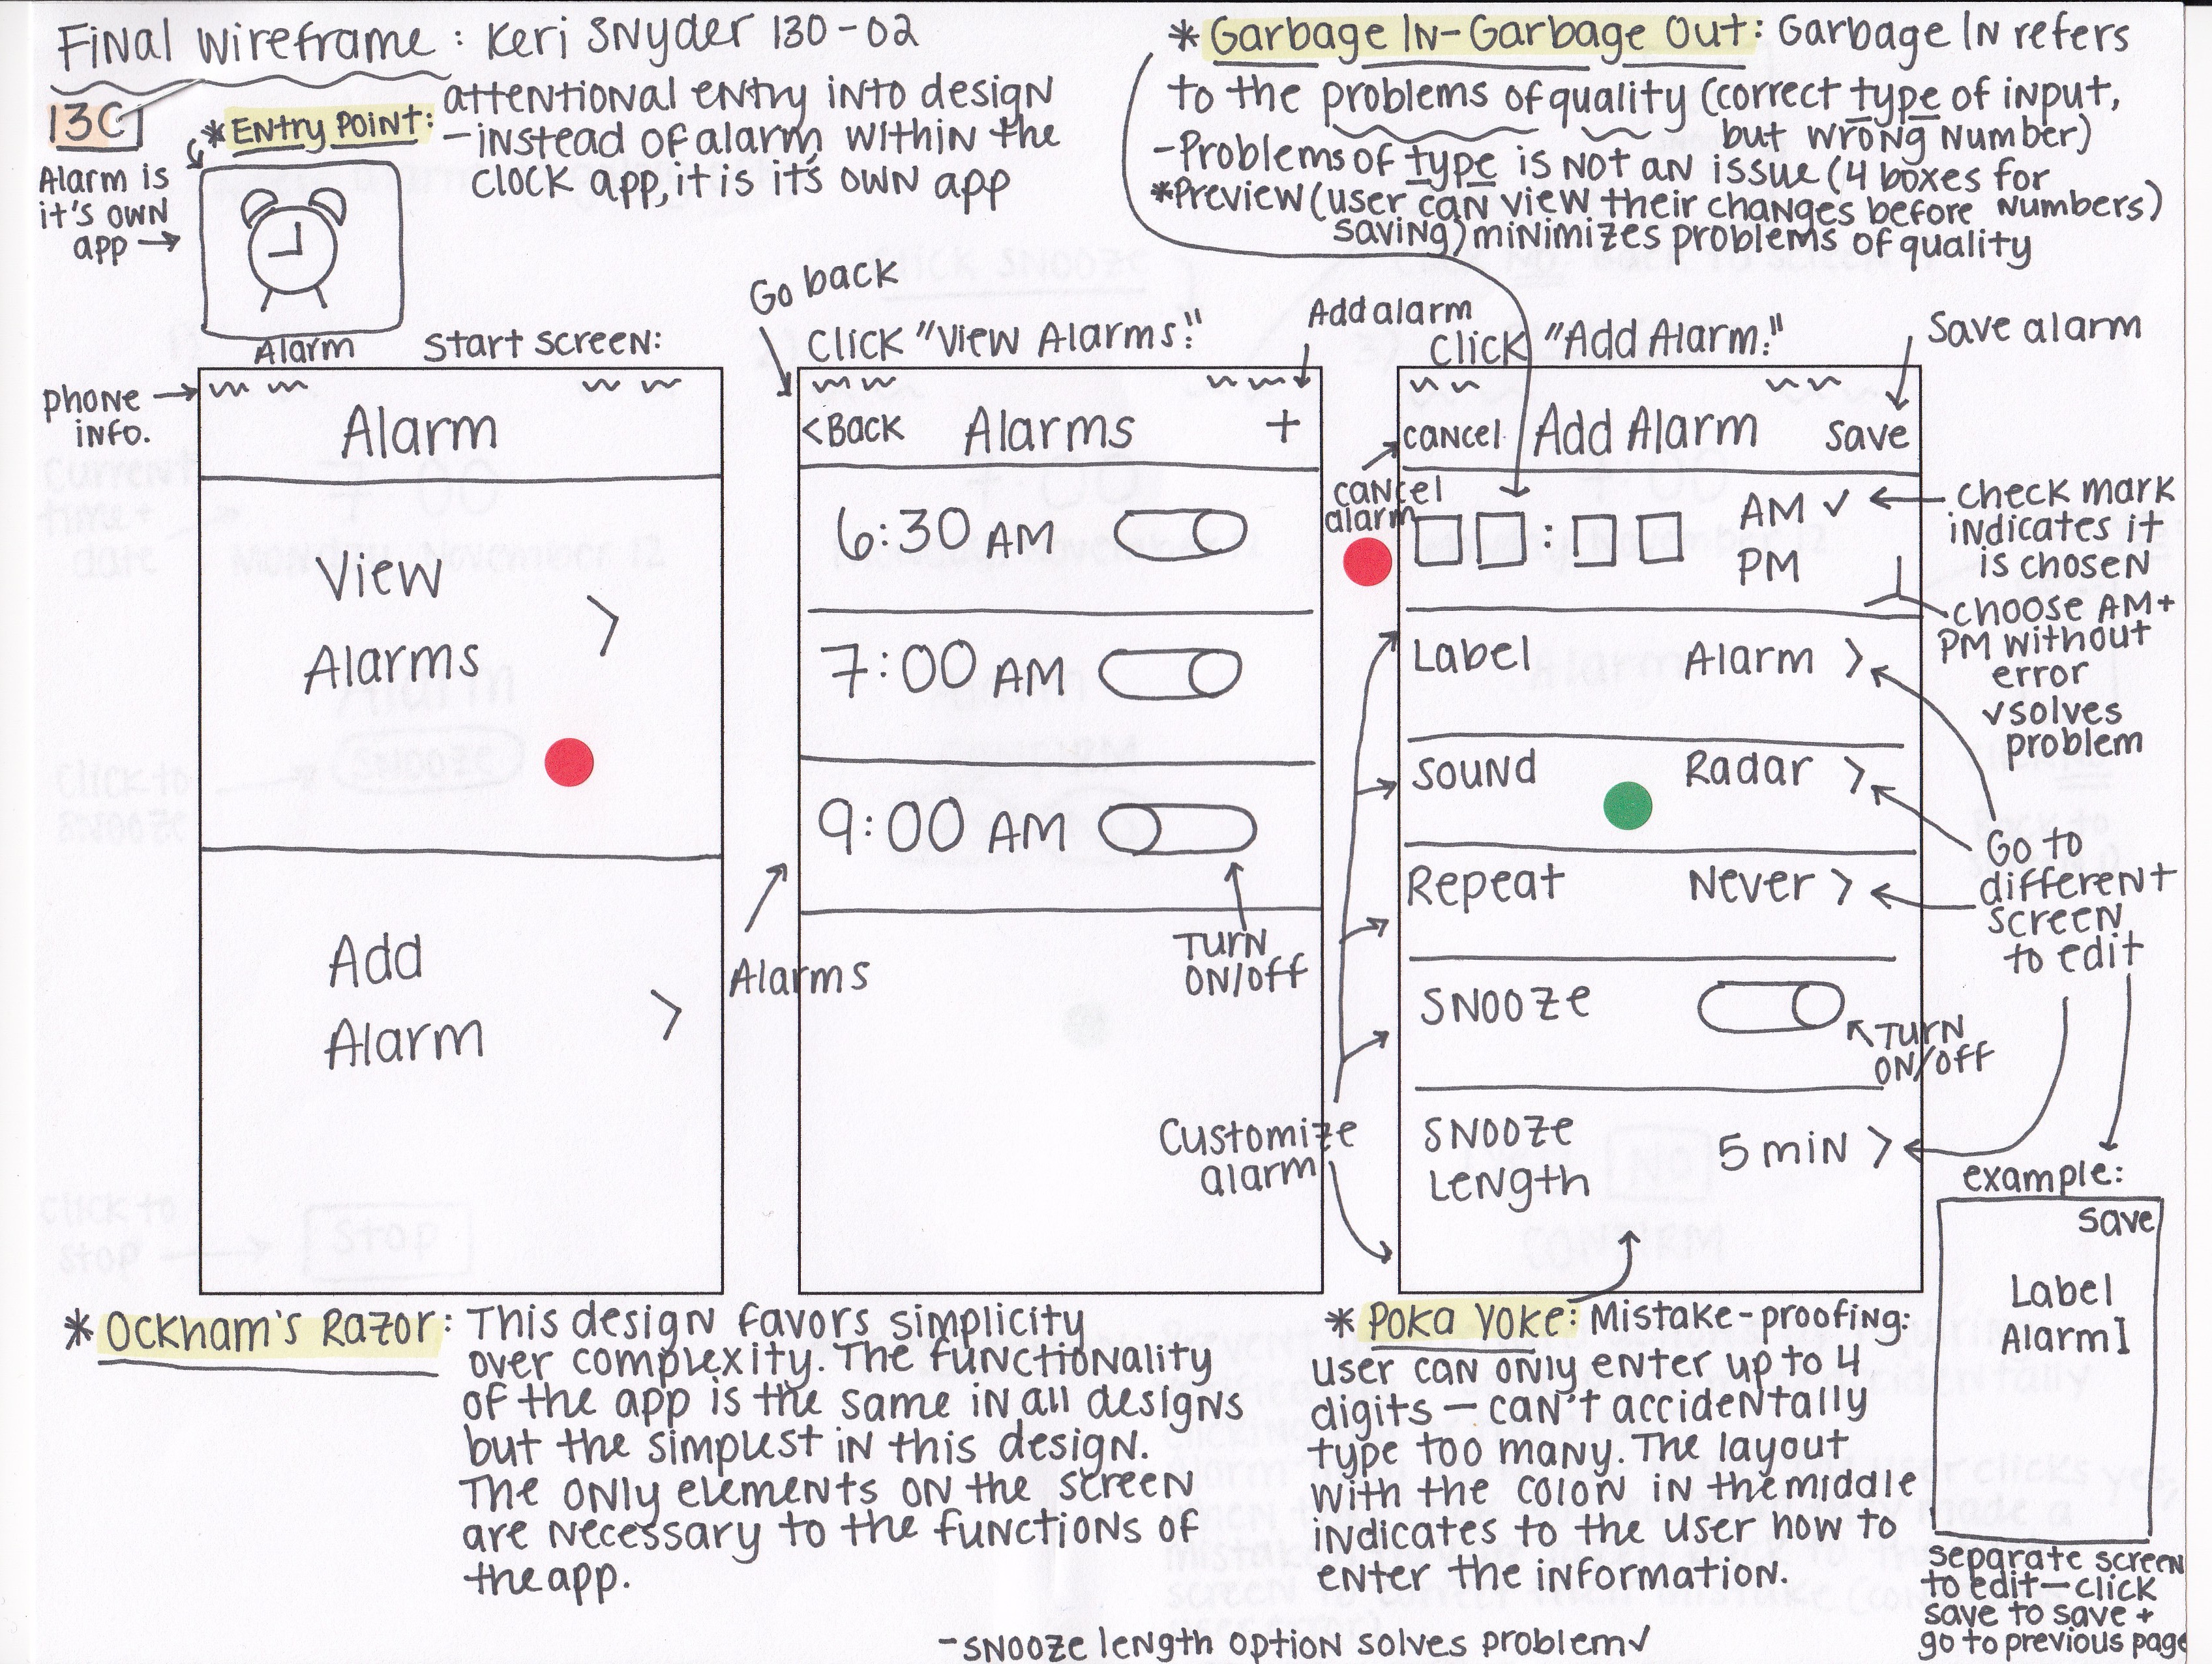 Final Wireframe: Keri Snyder 130-02
13C
*Entry Point: attentional entry into design
-instead of alarm within the
clock app, it is it's own app
Alarm is
it's own
app →
Alarm
*Garbage In-Garbage Out: Garbage In refers
to the problems of quality (correct type of input,
but wrong number)
-Problems of type is not an issue (4 boxes for
numbers)
*Preview (user can view their changes before
saving) minimizes problems of quality
Start screen:
phone
info.
Alarm
View
Alarms
>
Add
Alarm
>
Go back
Click "View Alarms:"
Add alarm
<Back Alarms +
6:30 AM
7:00 AM
9:00 AM
Alarms
Turn
on/off
Click "Add Alarm:"
Save alarm
cancel Add Alarm save
cancel
alarm
: AM ✓
PM
check mark
indicates it
is chosen
choose AM +
PM without
error
✓solves
problem
Label Alarm >
Sound Radar >
Repeat Never >
Snooze
Turn
on/off
Snooze
Length
5 min >
Go to
different
screen
to edit
Customize
alarm
example:
save
Label
Alarm I
separate screen
to edit-click
save to save +
go to previous page
*Ockham's Razor: This design favors simplicity
over complexity. The functionality
of the app is the same in all designs
but the simplest in this design.
The only elements on the screen
are necessary to the functions of
the app.
*Poka Yoke: Mistake-proofing:
user can only enter up to 4
digits - can't accidentally
type too many. The layout
with the colon in the middle
indicates to the user how to
enter the information.
-snooze length option solves problem✓